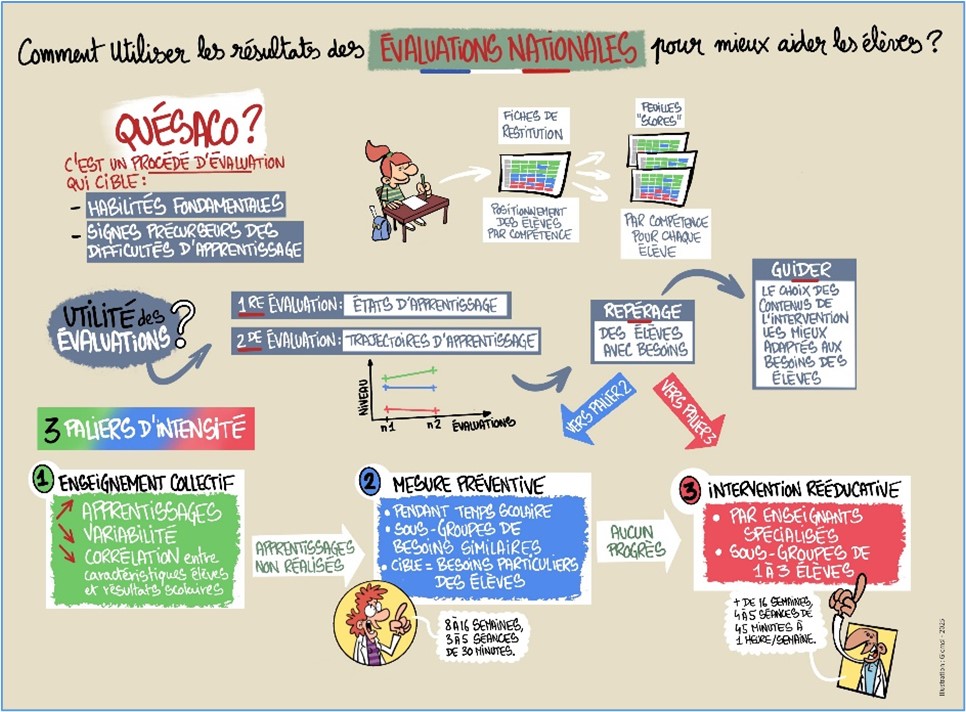 Comment Utiliser les résultats des ÉVALUATIONS NATIONALES pour mieux aider les élèves ?
QUÉSACO ?
C'EST UN PROCÉDÉ D'ÉVALUATION
QUI CIBLE :
- HABILITÉS FONDAMENTALES
- SIGNES PRÉCURSEURS DES
DIFFICULTÉS D'APPRENTISSAGE
FICHES DE
RESTITUTION
POSITIONNEMENT
DES ÉLÈVES
PAR COMPÉTENCE
FEUILLES
"SCORES"
PAR COMPÉTENCE
POUR CHAQUE
ÉLÈVE
UTILITÉ des
ÉVALUATIONS ?
1RE ÉVALUATION : ÉTATS D'APPRENTISSAGE
2DE ÉVALUATION : TRAJECTOIRES D'APPRENTISSAGE
NIVEAU
n1
n2
ÉVALUATIONS
REPÉRAGE
DES ÉLÈVES
AVEC BESOINS
GUIDER
LE CHOIX DES
CONTENUS DE
L'INTERVENTION
LES MIEUX
ADAPTÉS AUX
BESOINS DES
ÉLÈVES
VERS PALIER 2
VERS PALIER 3
3 PALIERS D'INTENSITÉ
1 ENSEIGNEMENT COLLECTIF
APPRENTISSAGES
VARIABILITÉ
CORRÉLATION entre
caractéristiques élèves
et résultats scolaires
APPRENTISSAGES
NON RÉALISÉS
2 MESURE PRÉVENTIVE
• PENDANT TEMPS SCOLAIRE
• SOUS-GROUPES DE
BESOINS SIMILAIRES
• CIBLE = BESOINS PARTICULIERS
DES ÉLÈVES
8 À 16 SEMAINES,
3 À 5 SÉANCES
DE 30 MINUTES.
AUCUN
PROGRÈS
3 INTERVENTION RÉÉDUCATIVE
• PAR ENSEIGNANTS
SPÉCIALISÉS
• SOUS-GROUPES DE
1 À 3 ÉLÈVES
+ DE 16 SEMAINES,
4 À 5 SÉANCES DE
45 MINUTES À
1 HEURE/SEMAINE.
Illustration :
- 2025